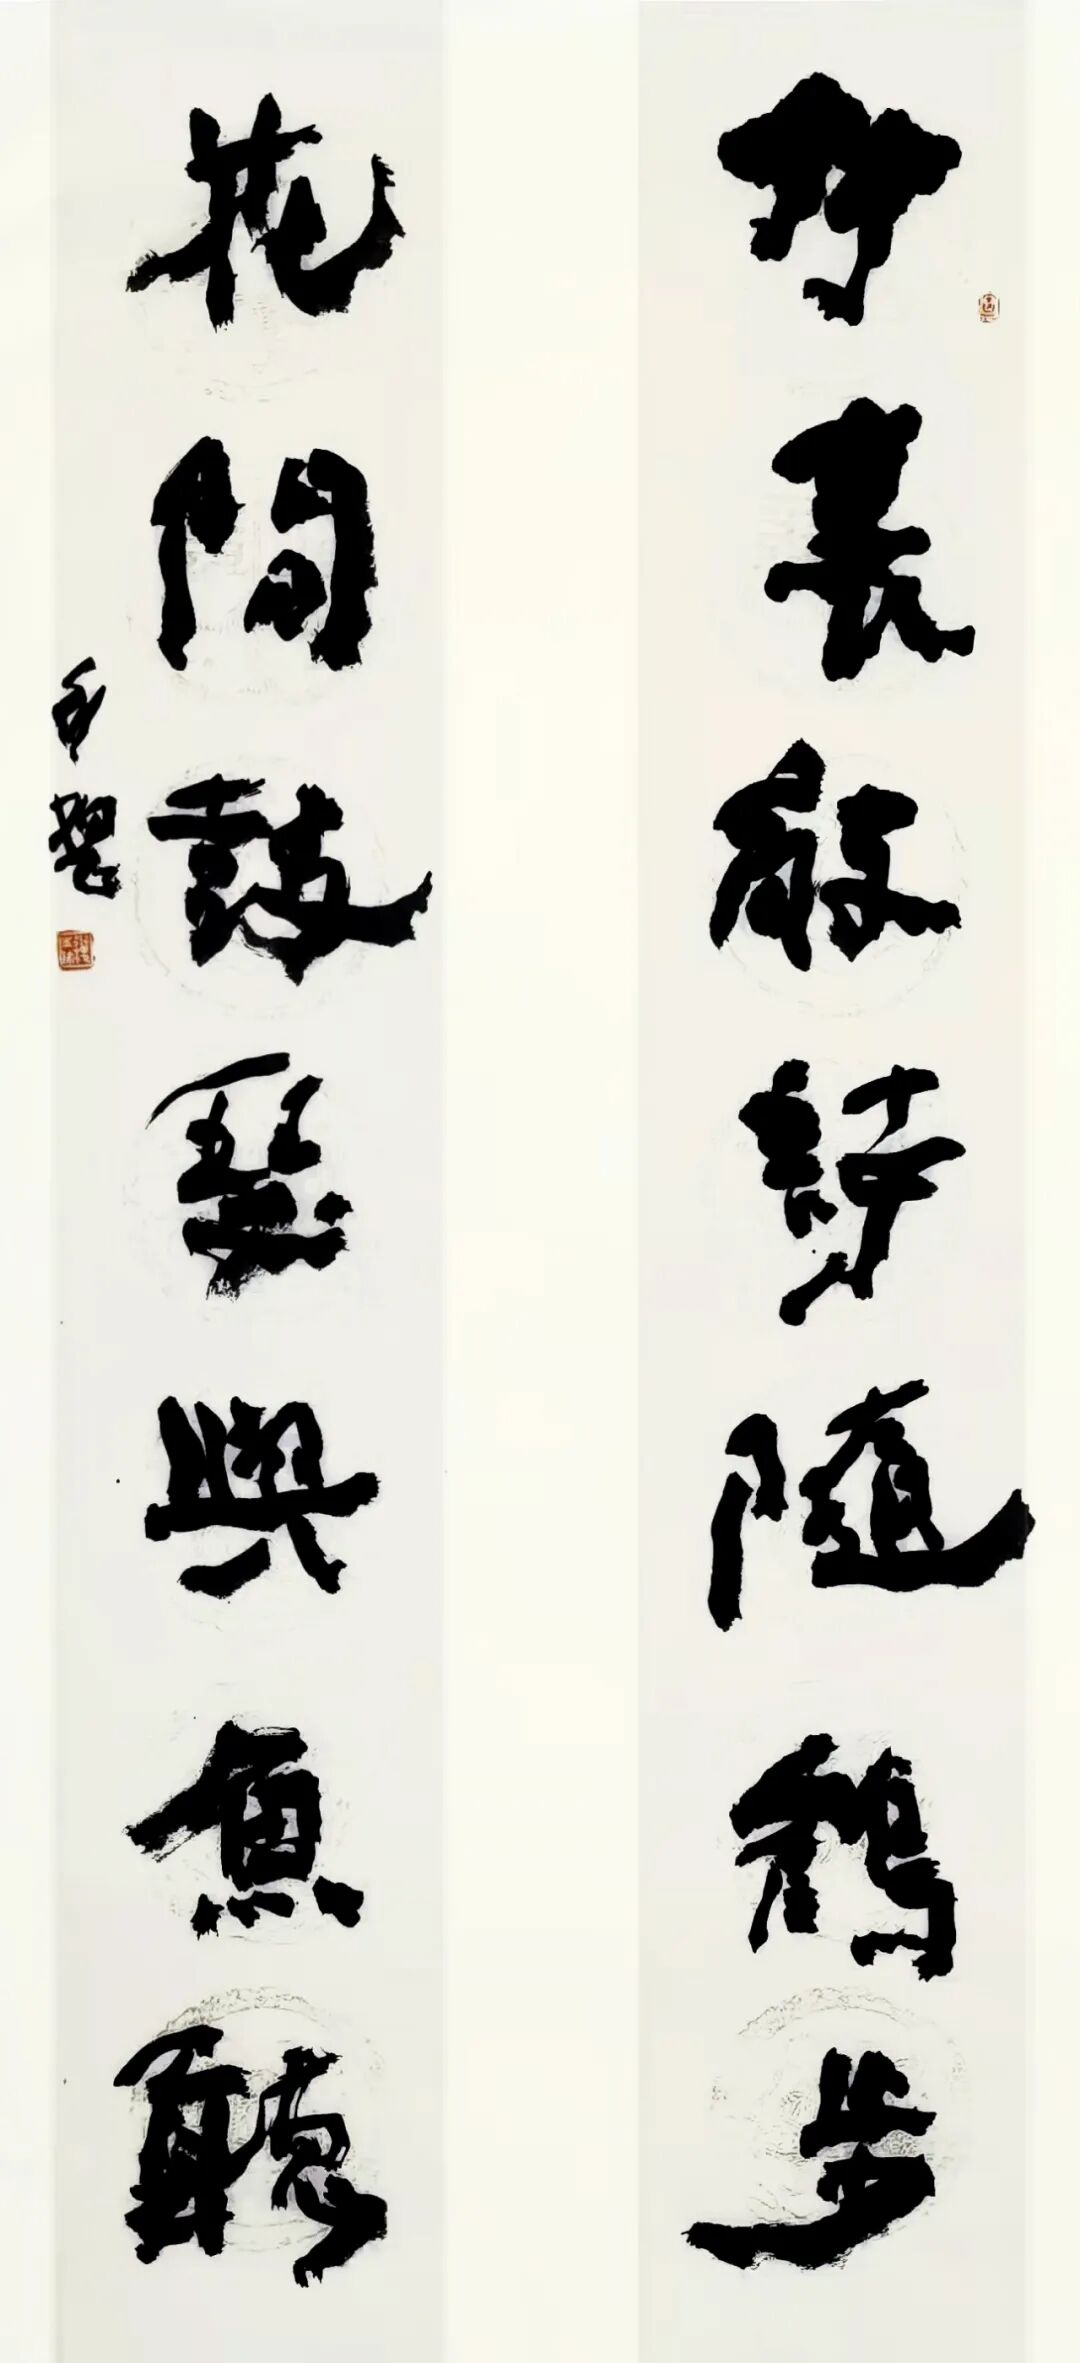 竹裏敲詩隨鶴步
花間鼓瑟與魚聽